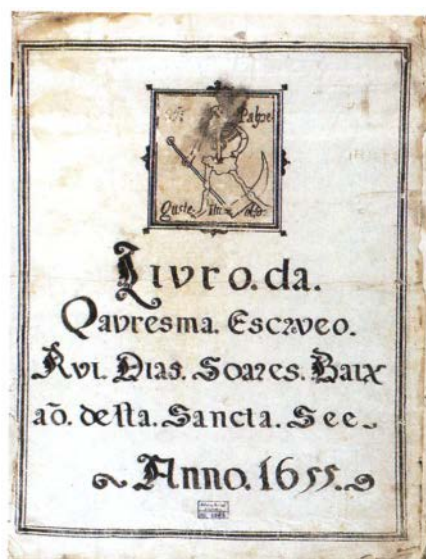 Palpe
Guste
Livro.da.
Qauresma. Escrveo.
Rvi. Dias. Soares. Baix
aõ. desta. Sancta. See.
Anno. 1655.